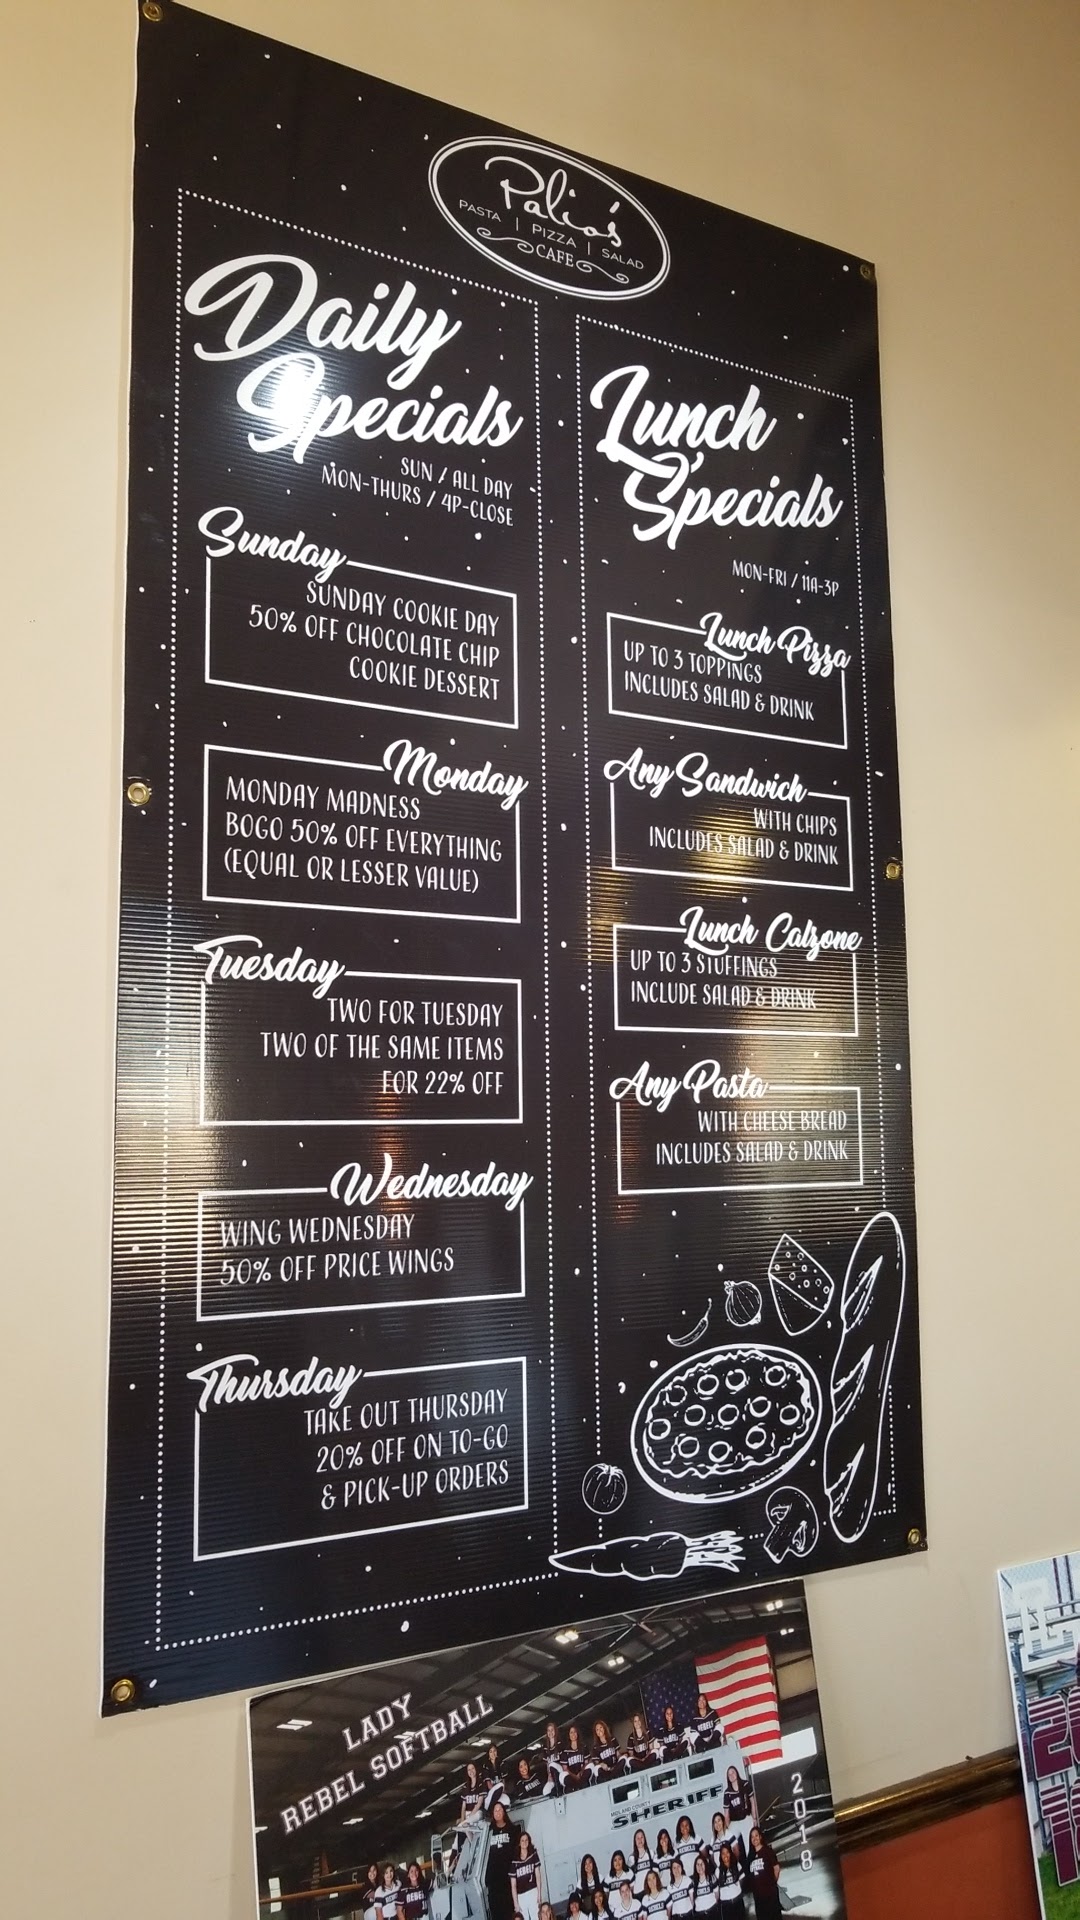 Palio's
PASTA | PIZZA | SALAD
CAFE
Daily
Specials
SUN / ALL DAY
MON-THURS / 4P-CLOSE
Sunday
SUNDAY COOKIE DAY
50% OFF CHOCOLATE CHIP
COOKIE DESSERT
Monday
MONDAY MADNESS
BOGO 50% OFF EVERYTHING
(EQUAL OR LESSER VALUE)
Tuesday
TWO FOR TUESDAY
TWO OF THE SAME ITEMS
FOR 22% OFF
Wednesday
WING WEDNESDAY
50% OFF PRICE WINGS
Thursday
TAKE OUT THURSDAY
20% OFF ON TO-GO
& PICK-UP ORDERS
Lunch
Specials
MON-FRI / 11A-3P
Lunch Pizza
UP TO 3 TOPPINGS
INCLUDES SALAD & DRINK
Any Sandwich
WITH CHIPS
INCLUDES SALAD & DRINK
Lunch Calzone
UP TO 3 STUFFINGS
INCLUDE SALAD & DRINK
Any Pasta
WITH CHEESE BREAD
INCLUDES SALAD & DRINK
LADY
REBEL SOFTBALL
MIDLAND COUNTY
SHERIFF
2018